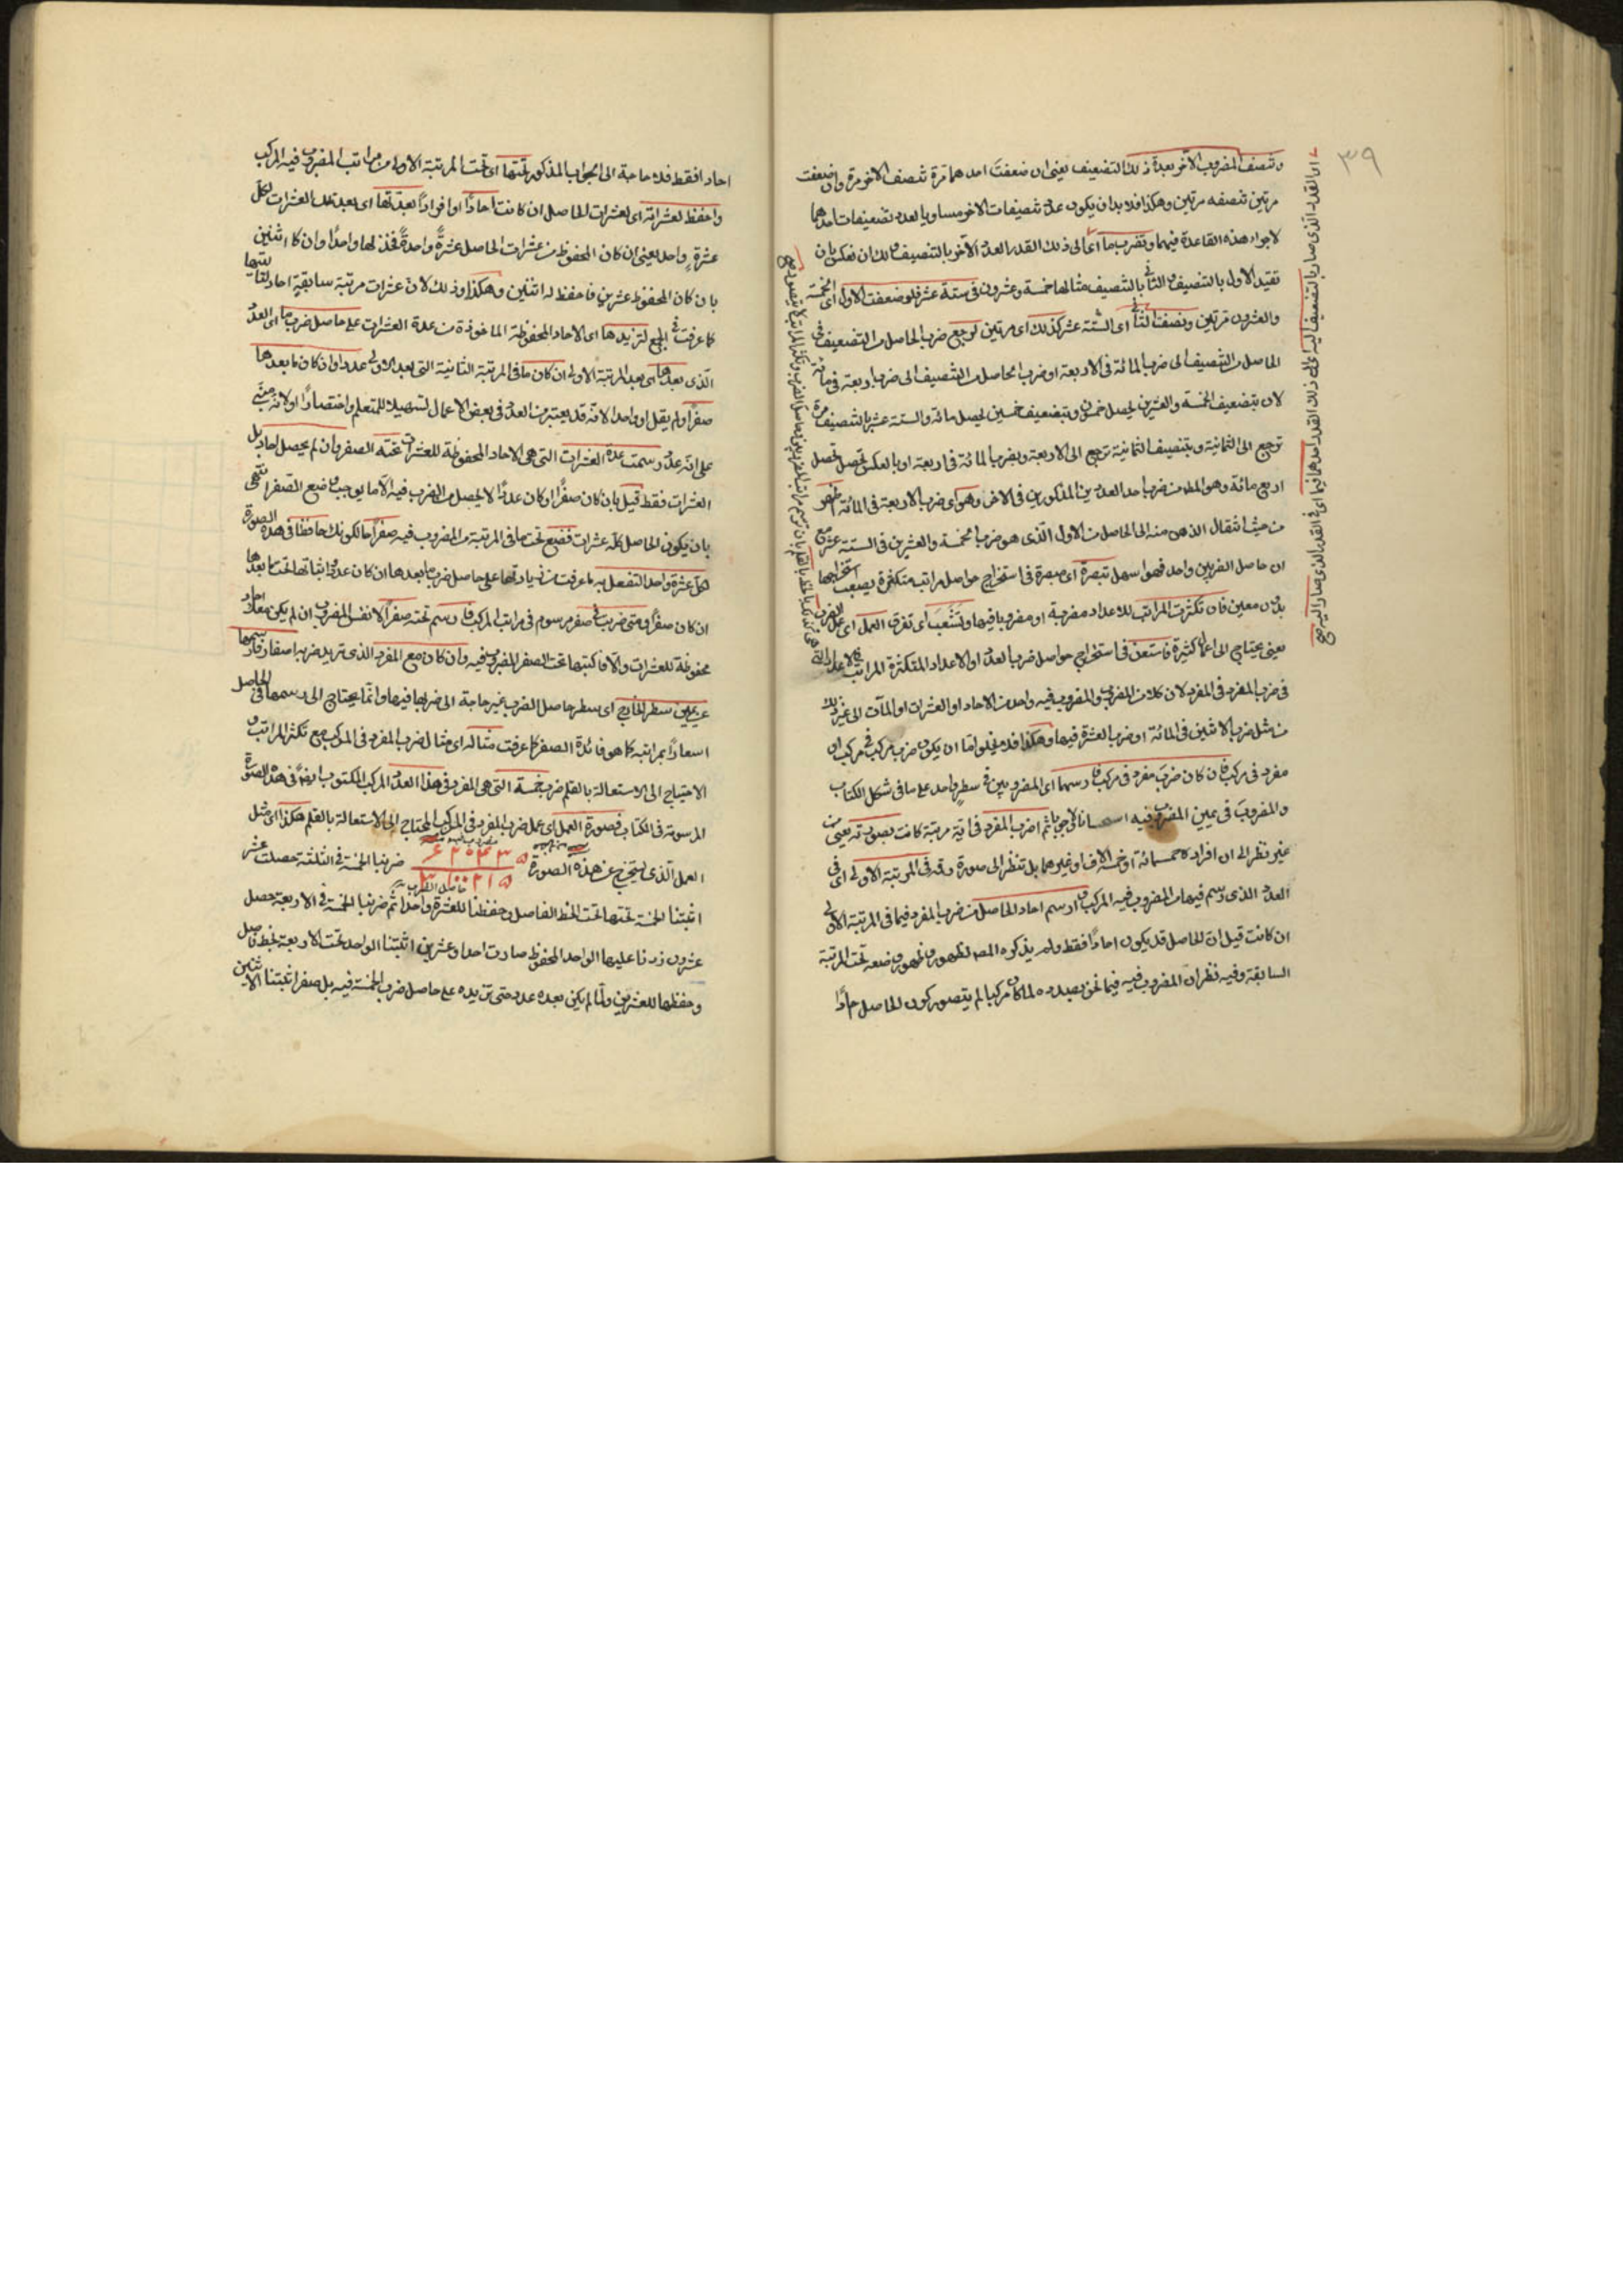 ٣٩
وتنصف المضروب الآخر بعدة ذلك التضعيف يعنى ان ضعفت احدهما مرة تنصف الآخر مرة وان ضعفت
مرتين تنصفه مرتين وهكذا فلا بد ان يكون عدة تنصيفات الآخر مساويا لعدد تضعيفات احدهما
لاجراء هذه القاعدة فيهما وتضرب ما اى الى ذلك القدر العدد الآخر بالتنصيف ولك ان تعكس بان
تقيد الاول بالتنصيف والثانى بالتضعيف مثالها خمسة وعشرون فى ستة عشر فلو ضعفت الاول اى الخمسة
والعشرون مرتين ونصفت الثانى اى الستة عشر كذلك اى مرتين لرجع ضرب الحاصل من التضعيف فى
الحاصل من التنصيف الى ضرب المائة فى الاربعة او ضرب الحاصل من التنصيف الى ضرب اربعة فى مائة
لان بتضعيف الخمسة والعشرين يحصل خمسون وبتضعيف خمسين يحصل مائة والستة عشر بالتنصيف مرة
ترجع الى الثمانية وبتنصيف الثمانية ترجع الى الاربعة وبضرب المائة فى اربعة او بالعكس تحصل
اربع مائة وهو المطلوب من ضرب احد العددين المذكورين فى الآخر وهو اى ضرب الاربعة فى المائة اظهر
من حيث انتقال الذهن منه الى الحاصل من الاول الذى هو ضرب الخمسة والعشرين فى الستة عشر مع
ان حاصل الضربين واحد فهو اسهل تبصرة اى مبصرة فى استخراج حواصل مراتب متكثرة يصعب استخراجها
بدون معين فان تكثرت المراتب للاعداد مضروبة او مضروبا فيها وتشعب اى تفرق العمل اى عمل الضرب
يعنى يحتاج الى اعمال كثيرة فاستعن فى استخراج حواصل ضرب العدد او الاعداد المتكثرة المراتب
فى ضرب المفرد فى المفرد لان كلا من المضروب والمضروب فيه واحد من الآحاد او العشرات او المآت الى غير ذلك
من مثل ضرب الاثنين فى المائة او ضرب العشرة فيها وهكذا فلا يخلو اما ان يكون ضرب مركب فى مركب او
مفرد فى مركب فان كان ضرب مفرد فى مركب فارسمها اى المضروبين فى سطر واحد على ما فى شكل الكتاب
والمضروب فى يمين المضروب فيه استحسانا لا وجوبا ثم اضرب المفرد فى اية مرتبة كانت بصورته يعنى من
غير نظر الى ان افراده خمسمائة او خمسة آلاف او غيرهما بل تنظر الى صورة رقمه فى المرتبة الاولى اى فى
العدد الذى رسم فيها من المضروب فيه المركب وارسم احاد الحاصل من ضرب المفرد فيما فى المرتبة الاولى
ان كانت قيل ان الحاصل قد يكون احادا فقط ولم يذكره المص لظهوره وظهور وضعه تحت المرتبة
السابقة وفيه نظر لان المضروب فيه فيما نحن بصدده لما كان مركبا لم يتصور كون الحاصل احادًا
احاد فقط فلا حاجة الى الجواب المذكور تحتها اى تحت المرتبة الاولى من مراتب المضروب فيه المركب
واحفظ لعشراته اى لعشرات الحاصل ان كانت احادًا او افرادًا بعدتها اى بعدة تلك العشرات لكل
عشرة واحد يعنى ان كان المحفوظ من عشرات الحاصل عشرة واحدة فخذ لها واحدا وان كان اثنين
بان كان المحفوظ عشرين فاحفظ له اثنين وهكذا وذلك لان عشرات مرتبة سابقة احاد لما تليها
كما عرفت فى الجمع لتزيدها اى الآحاد المحفوظة الماخوذة من عدة العشرات على حاصل ضرب ما اى العدد
الذى بعدها اى بعد المرتبة الاولى ان كان ما فى المرتبة الثانية التى بعد الاولى عددا وان كان ما بعدها
صفرا ولم يقل او واحدا لانه قد يعتبر من العدد فى بعض الاعمال تسهيلا للمتعلم واختصارًا او لانه مبنى
على انه عدد رسمت عدة العشرات التى هى الآحاد المحفوظة للعشرات تحته الصفر وان لم يحصل احاد بل
العشرات فقط قيل بان كان صفرا او كان عددًا لا يحصل من الضرب فيه الا ما يوجب وضع الصفر انتهى
بان يكون الحاصل كله عشرات فضع تحت ما فى المرتبة من المضروب فيه صفرا حالكونك حافظا فى هذه الصورة
لكل عشرة واحدا لتفعل به ما عرفت من زيادتها على حاصل ضرب ما بعدها ان كان عددا واثباتها تحت ما بعدها
ان كان صفرا ومتى ضربت فى صفر مرسوم فى مراتب المركب فارسم تحته صفرا لا نفس المضروب ان لم يكن معك احاد
محفوظة للعشرات والا فاكتبها تحت الصفر المضروب فيه وان كان مع المفرد الذى تريد ضربه اصفار فارسمها
عن يمين سطر الخارج اى سطر حاصل الضرب بغير حاجة الى ضربها فيها وانما يحتاج الى رسمها فى الحاصل
اسعارًا بمراتبه كما هو فائدة الصفر كما عرفت مثاله اى مثال ضرب المفرد فى المركب مع تكثر المراتب و
الاحتياج الى الاستعانة بالقلم ضرب خمسة التى هى المفرد فى هذا العدد المركب المكتوب ايضا فى هذه الصورة
المرسومة فى الكتاب فصورة العمل اى عمل ضرب المفرد فى المركب المحتاج الى الاستعانة بالقلم هكذا اى مثل
العمل الذى يستخرج من هذه الصورة ضربنا الخمسة فى الثلثة حصلت خمسة عشر
٦٢٠٤٣ ٥
٣١٠٢١٥
اثبتنا الخمسة تحتها تحت الخط الفاصل وحفظنا للعشرة واحدا ثم ضربنا الخمسة فى الاربعة حصل
عشرون زدنا عليها الواحد المحفوظ صارت احدا وعشرين اثبتنا الواحد تحت الاربعة بخط فاصل
وحفظنا للعشرين ولما لم يكن بعده عدد حتى نزيده على حاصل ضرب الخمسة فيه بل صفرا اثبتنا الاثنين